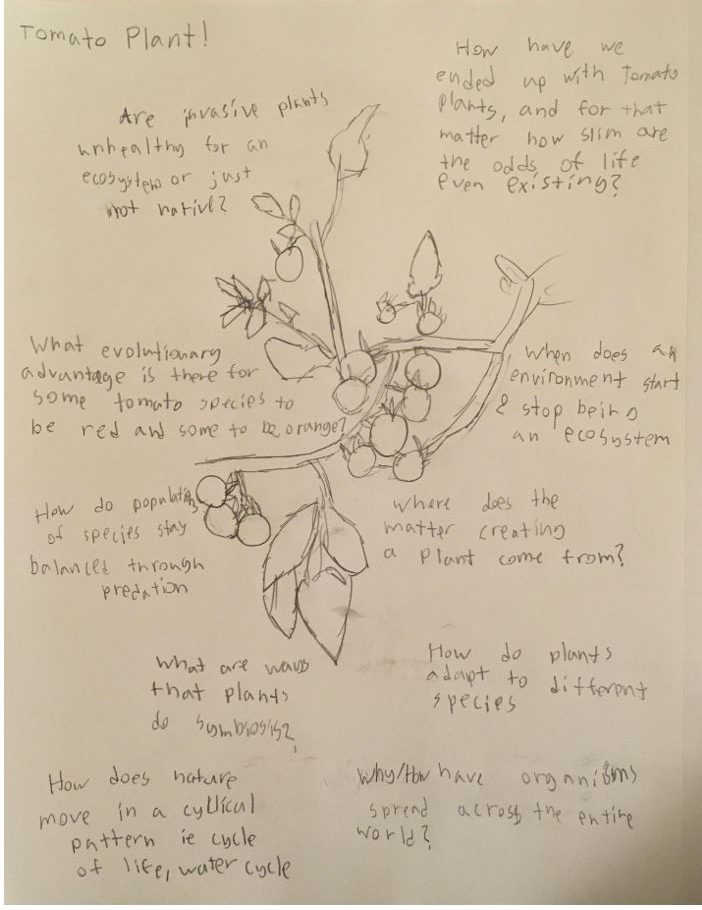 Tomato Plant!
How have we
ended up with Tomato
plants, and for that
matter how slim are
the odds of life
even existing?
Are invasive plants
unhealthy for an
ecosystem or just
not native?
What evolutionary
advantage is there for
some tomato species to
be red and some to be orange?
When does an
environment start
& stop being
an ecosystem
How do populations
of species stay
balanced through
predation
Where does the
matter creating
a plant come from?
What are ways
that plants
do symbiosis?
How do plants
adapt to different
species
How does nature
move in a cyclical
pattern ie cycle
of life, water cycle
Why/How have organisms
spread across the entire
world?